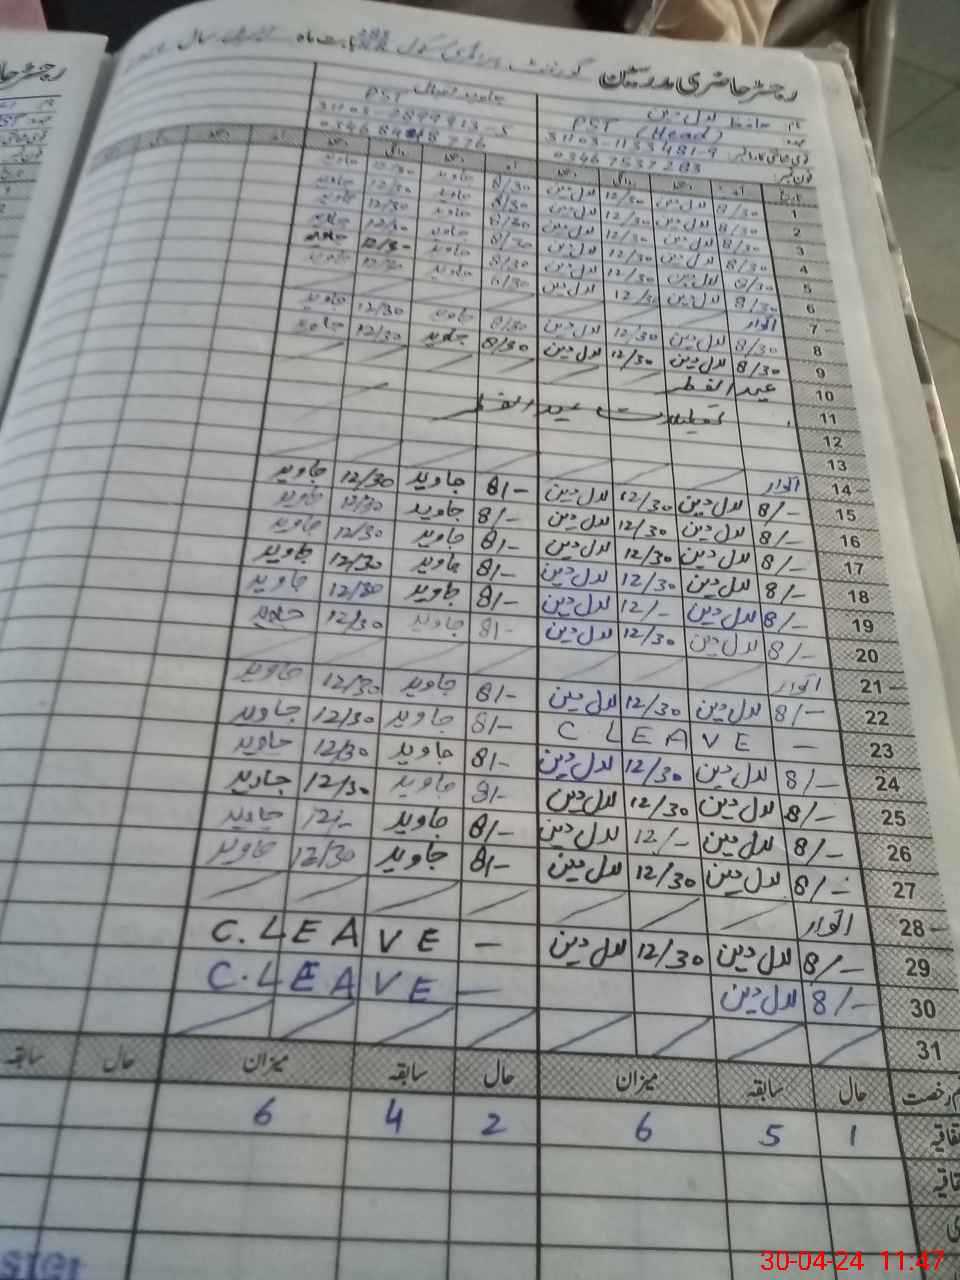 رجسٹر حاضری مدرسین گورنمنٹ پرائمری سکول بابت ماہ اپریل سال
نام حافظ لال دین
عہدہ PST (Head) PST
قومی شناختی کارڈ نمبر 31103-1133481-9 31103-2899913-5
فون نمبر 0346 7537263
تاریخ آمد دستخط روانگی دستخط آمد دستخط روانگی دستخط آمد
1 8/30 لال دین 12/30 لال دین 8/30 جاوید 12/30 جاوید
2 8/30 لال دین 12/30 لال دین 8/30 جاوید 12/30 جاوید
3 8/30 لال دین 12/30 لال دین 8/30 جاوید 12/30 جاوید
4 8/30 لال دین 12/30 لال دین 8/30 جاوید 12/30 جاوید
5 8/30 لال دین 12/30 لال دین 8/30 جاوید 12/30 جاوید
6 8/30 لال دین 12/30 لال دین 8/30
7 اتوار
8 8/30 لال دین 12/30 لال دین 8/30 جاوید 12/30 جاوید
9 8/30 لال دین 12/30 لال دین 8/30 جاوید 12/30 جاوید
10 عید الفطر
11 تعطیلات عید الفطر
12
13
14 اتوار
15 8/- لال دین 12/30 لال دین 8/- جاوید 12/30 جاوید
16 8/- لال دین 12/30 لال دین 8/- جاوید 12/30 جاوید
17 8/- لال دین 12/30 لال دین 8/- جاوید 12/30 جاوید
18 8/- لال دین 12/30 لال دین 8/- جاوید 12/30 جاوید
19 8/- لال دین 12/- لال دین 8/- جاوید 12/30 جاوید
20 8/- لال دین 12/30 لال دین 8/- جاوید 12/30 جاوید
21 اتوار
22 8/- لال دین 12/30 لال دین 8/- جاوید 12/30 جاوید
23 — C. LEAVE 8/- جاوید 12/30 جاوید
24 8/- لال دین 12/30 لال دین 8/- جاوید 12/30 جاوید
25 8/- لال دین 12/30 لال دین 8/- جاوید 12/30 جاوید
26 8/- لال دین 12/- لال دین 8/- جاوید 12/- جاوید
27 8/- لال دین 12/30 لال دین 8/- جاوید 12/30 جاوید
28 اتوار
29 8/- لال دین 12/30 لال دین — C. LEAVE
30 8/- لال دین — C. LEAVE
31
رخصت حال سابقہ میزان حال سابقہ میزان حال سابقہ
1 5 6 2 4 6
30-04-24 11:47